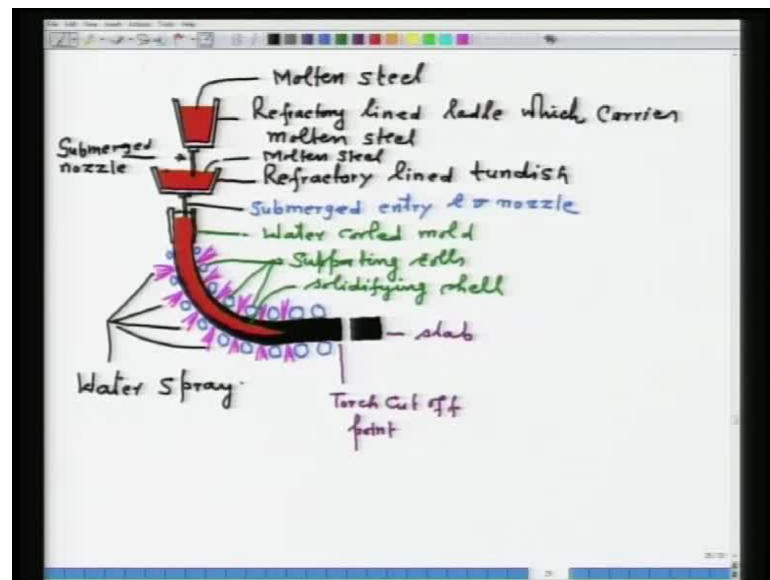 Molten steel
Refractory lined ladle which carries
molten steel
Submerged
nozzle
Molten steel
Refractory lined tundish
Submerged entry nozzle
Water cooled mold
Supporting rolls
solidifying shell
slab
Water Spray.
Torch Cut off
point